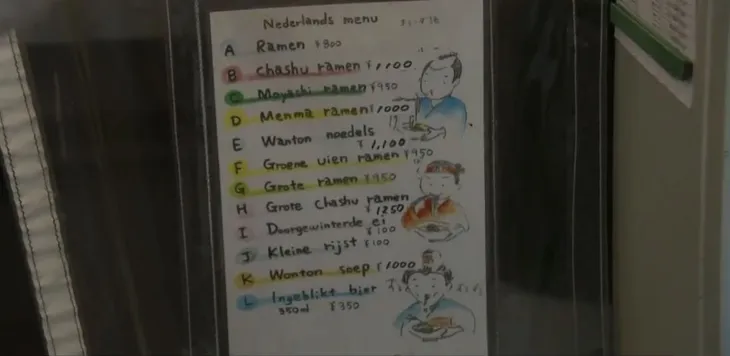 Nederlands menu
A Ramen ¥800
B Chashu ramen ¥1100
C Moyashi ramen ¥950
D Menma ramen ¥1000
E Wanton noedels
¥1,100
F Groene uien ramen ¥950
G Grote ramen ¥950
H Grote Chashu ramen
¥1250
I Doorgewinterde ei
¥100
J Kleine rijst ¥100
K Wonton soep ¥1000
L Ingeblikt bier
350ml ¥350